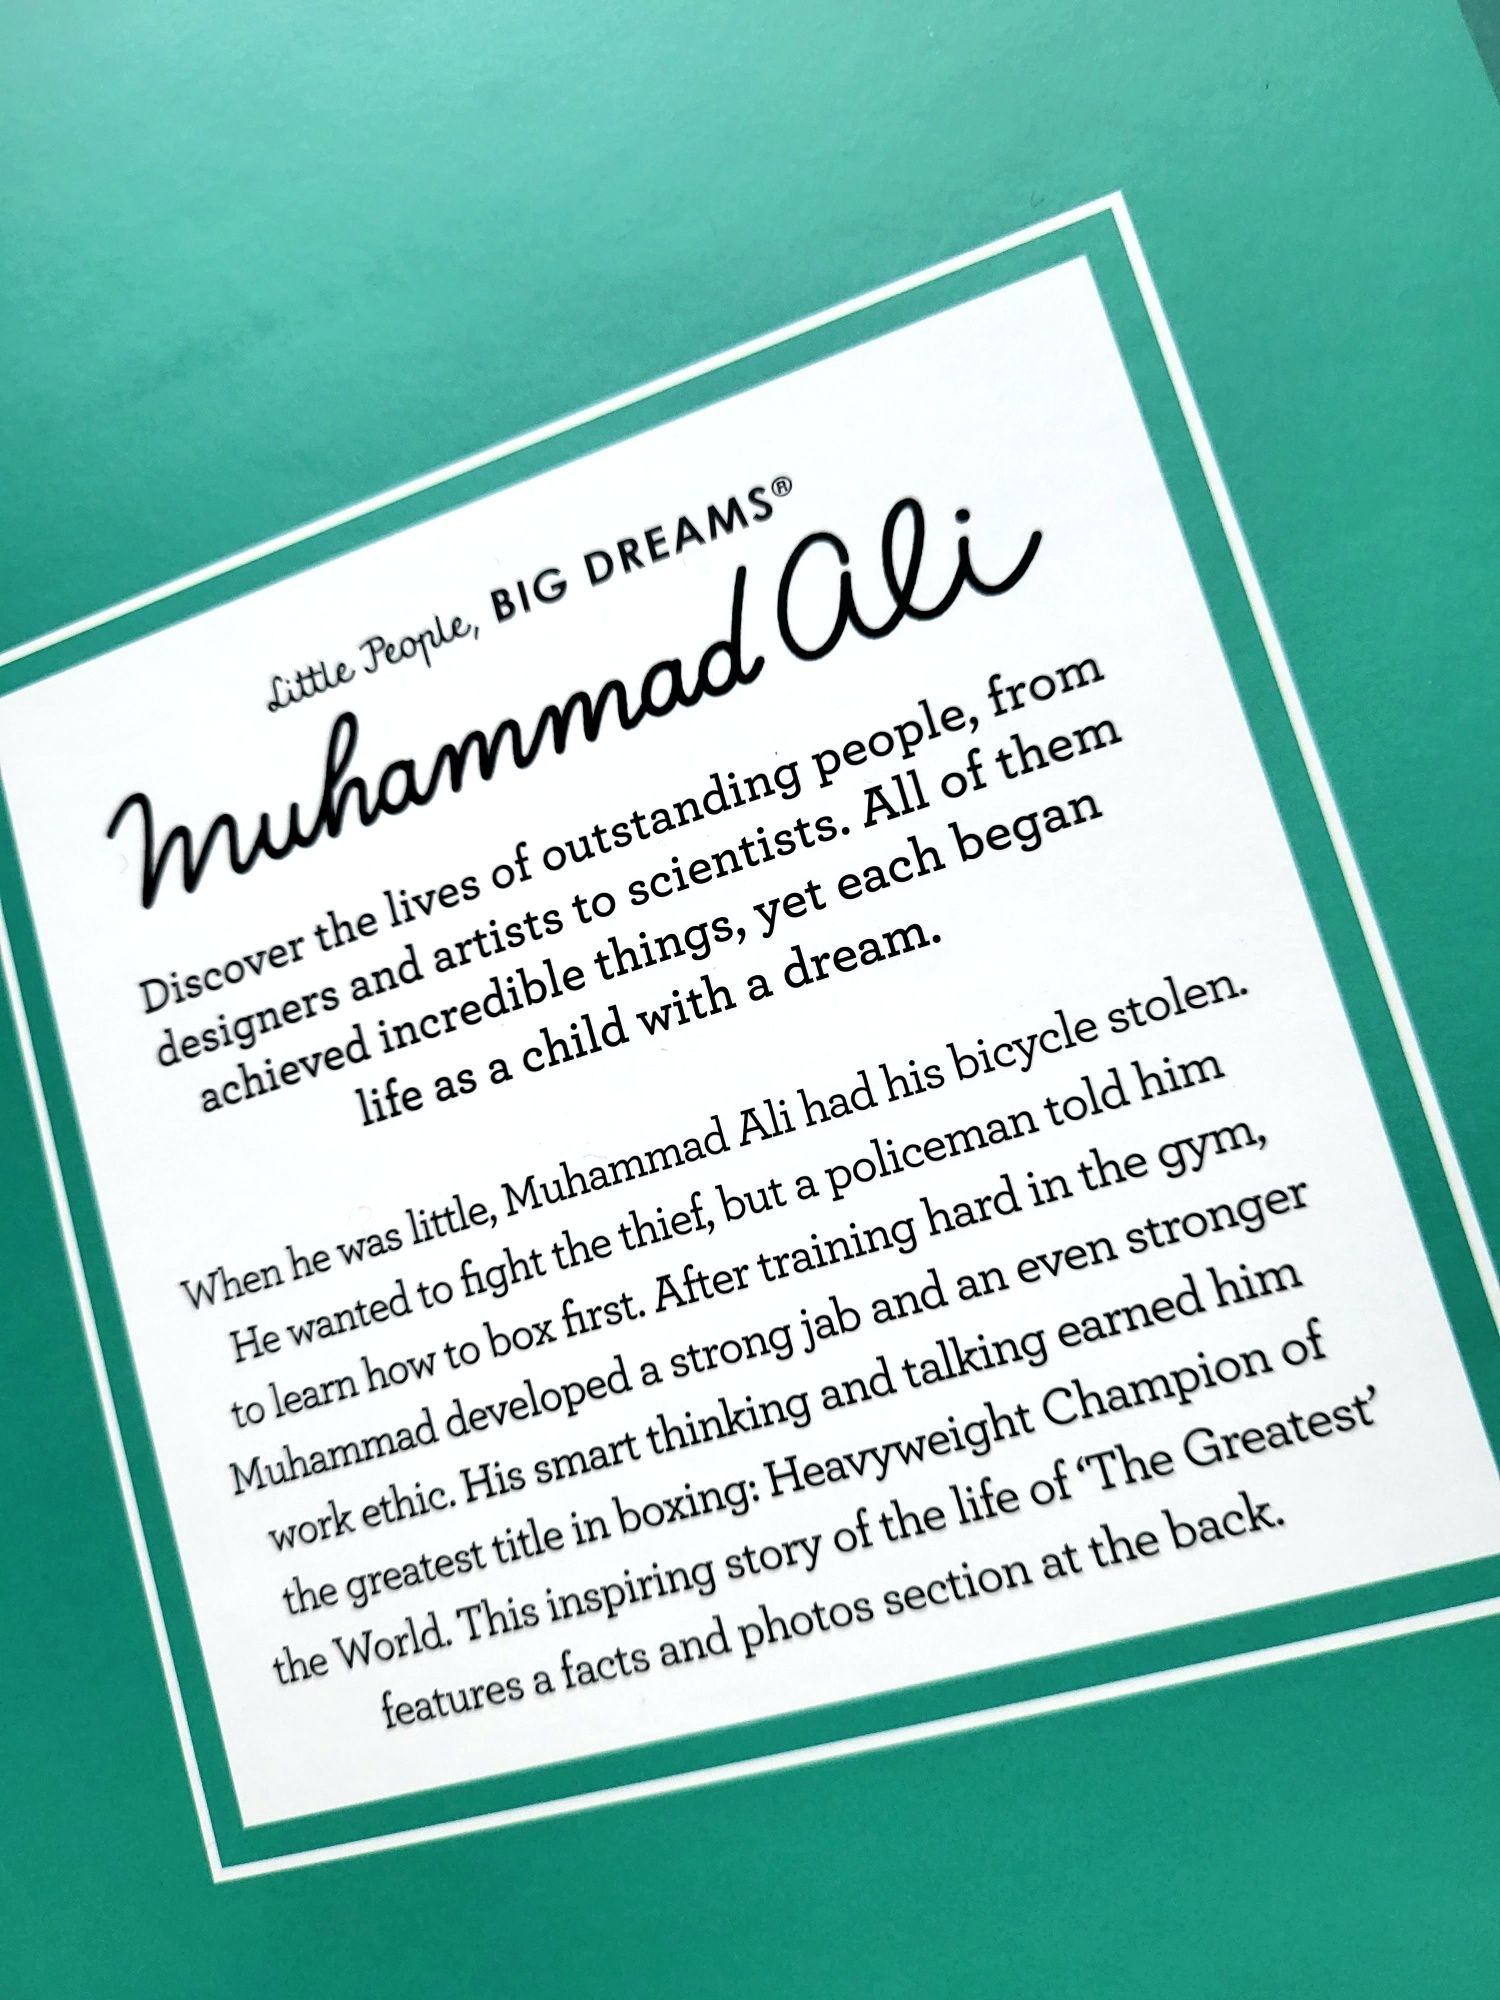 Little People, BIG DREAMS®
Muhammad Ali
Discover the lives of outstanding people, from
designers and artists to scientists. All of them
achieved incredible things, yet each began
life as a child with a dream.
When he was little, Muhammad Ali had his bicycle stolen.
He wanted to fight the thief, but a policeman told him
to learn how to box first. After training hard in the gym,
Muhammad developed a strong jab and an even stronger
work ethic. His smart thinking and talking earned him
the greatest title in boxing: Heavyweight Champion of
the World. This inspiring story of the life of ‘The Greatest’
features a facts and photos section at the back.